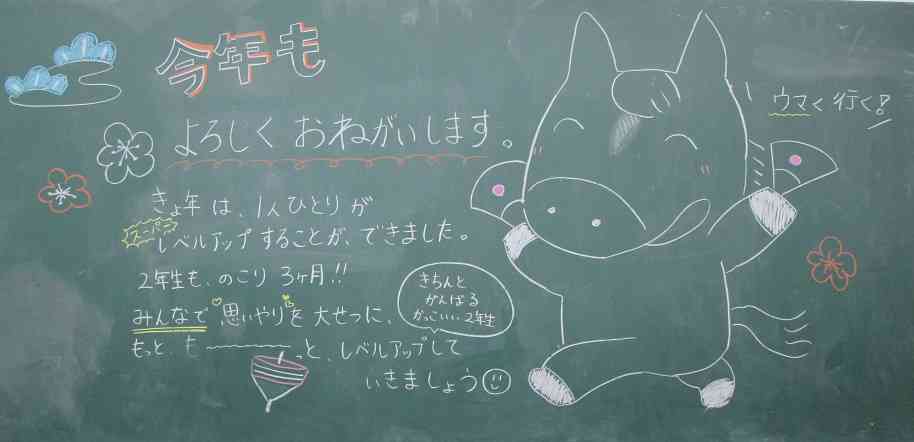 今年も
よろしく おねがいします。
ウマく行く!
きょ年は、1人ひとりが
スーパー
レベルアップすることが、できました。
2年生も、のこり3ヶ月!!
みんなで思いやりを大せつに、
もっと、も〜〜〜っと、レベルアップして
いきましょう
きちんと
がんばる
かっこいい2年生